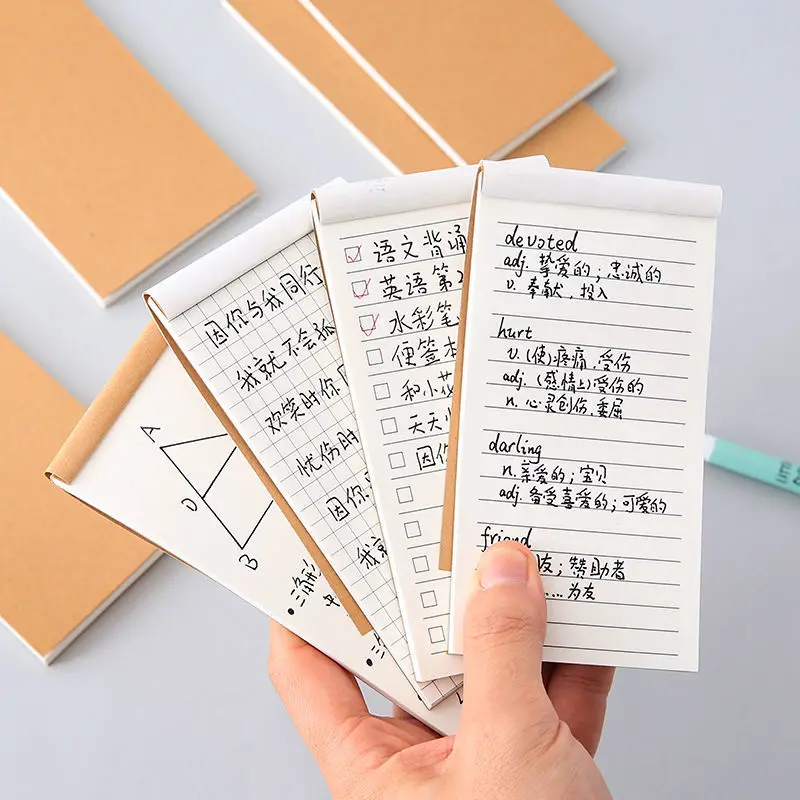 A
D
B
三角形
中
因你与我同行
我就不会孤
欢笑时你
忧伤时
因你
我
语文背诵
英语第
水彩笔
便签本
和小花
天天
因你
devoted
adj. 挚爱的；忠诚的
v. 奉献，投入
hurt
v. (使)疼痛，受伤
adj. (感情上)受伤的
n. 心灵创伤，委屈
darling
n. 亲爱的；宝贝
adj. 备受喜爱的；可爱的
friend
友；赞助者
……为友